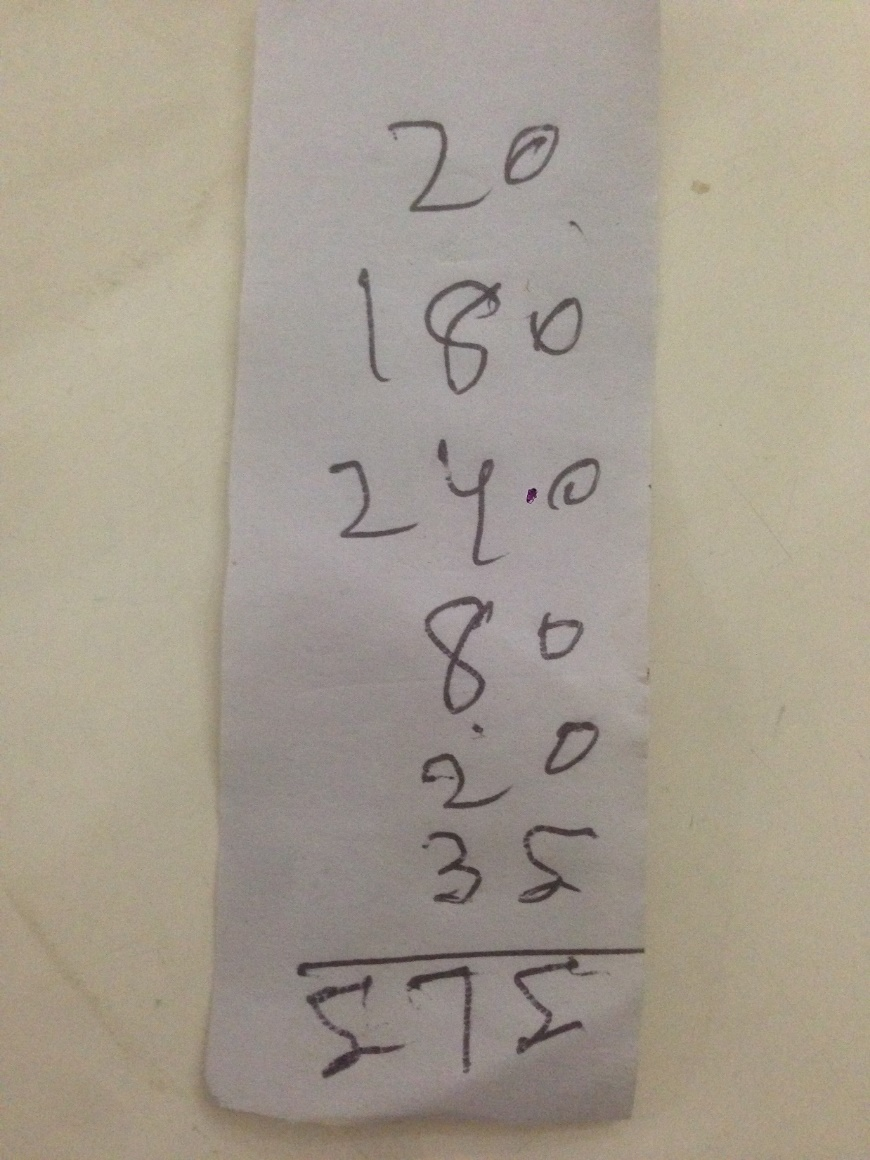 20
180
240
80
20
35
575